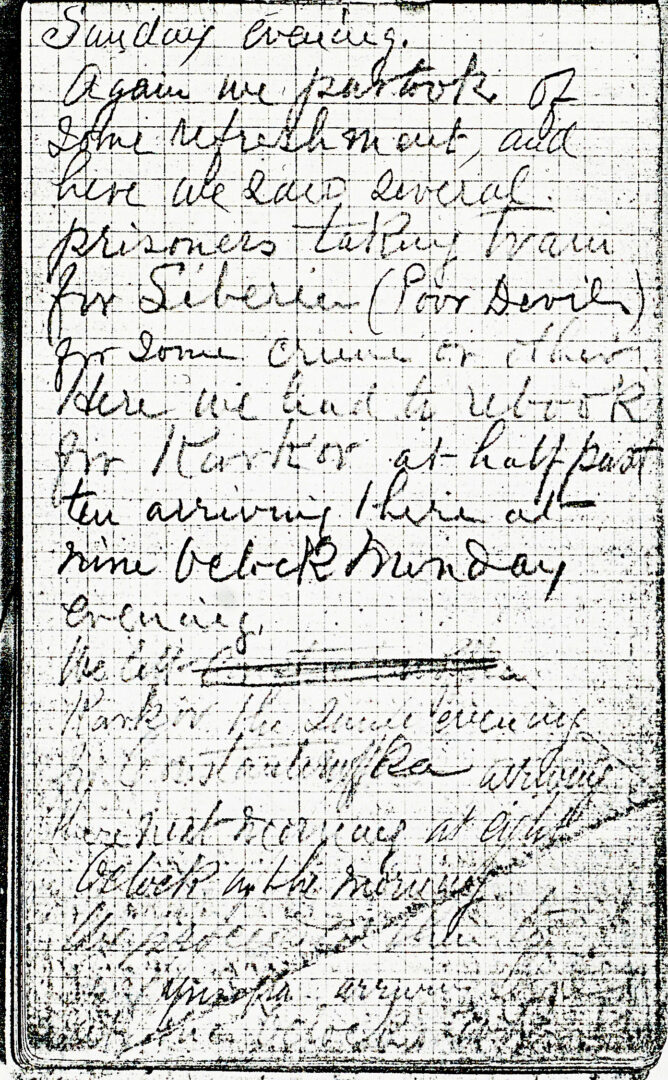 Sunday evening.
Again we partook of
some refreshment, and
here we saw several
prisoners taking train
for Siberia (Poor Devils)
for some crime or other.
Here we had to rebook
for Karkov at half past
ten arriving there at
nine Oclock Monday
evening.
We left
Karkov the same evening
for Constantinofka arriving
there next morning at eight
Oclock in the morning
We
arriving